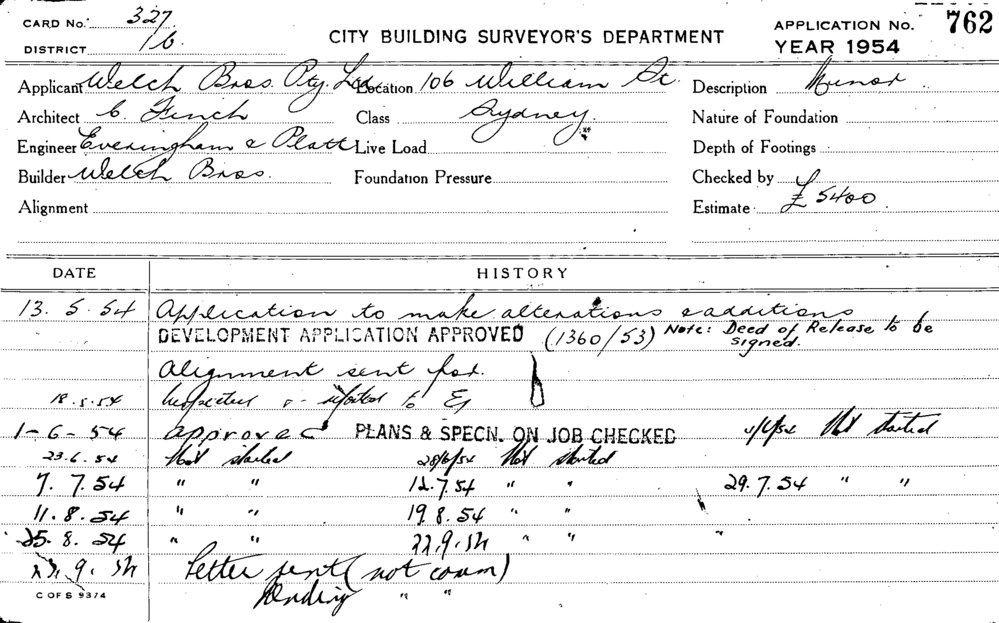 CARD No. 327
DISTRICT 16
CITY BUILDING SURVEYOR'S DEPARTMENT
APPLICATION No. 762
YEAR 1954
Applicant Welch Bros. Pty. Ltd Location 106 William St. Description Minor
Architect C. Finch Class Sydney. Nature of Foundation
Engineer Everingham & Platt Live Load Depth of Footings
Builder Welch Bros. Foundation Pressure Checked by
Alignment Estimate £5400
DATE HISTORY
13.5.54 Application to make alterations & additions
DEVELOPMENT APPLICATION APPROVED (1360/53) Note: Deed of Release to be signed.
Alignment sent for.
18.5.54 Inspected & reported to
1-6-54 Approved PLANS & SPECN. ON JOB CHECKED Not started
23.6.54 Not started 28/6/54 Not started
7.7.54 " " 12.7.54 " " 29.7.54 " "
11.8.54 " " 19.8.54 " "
25.8.54 " " 22.9.54 " " "
9.54 Letter sent (not comm)
Pending " "
C OF S 9374